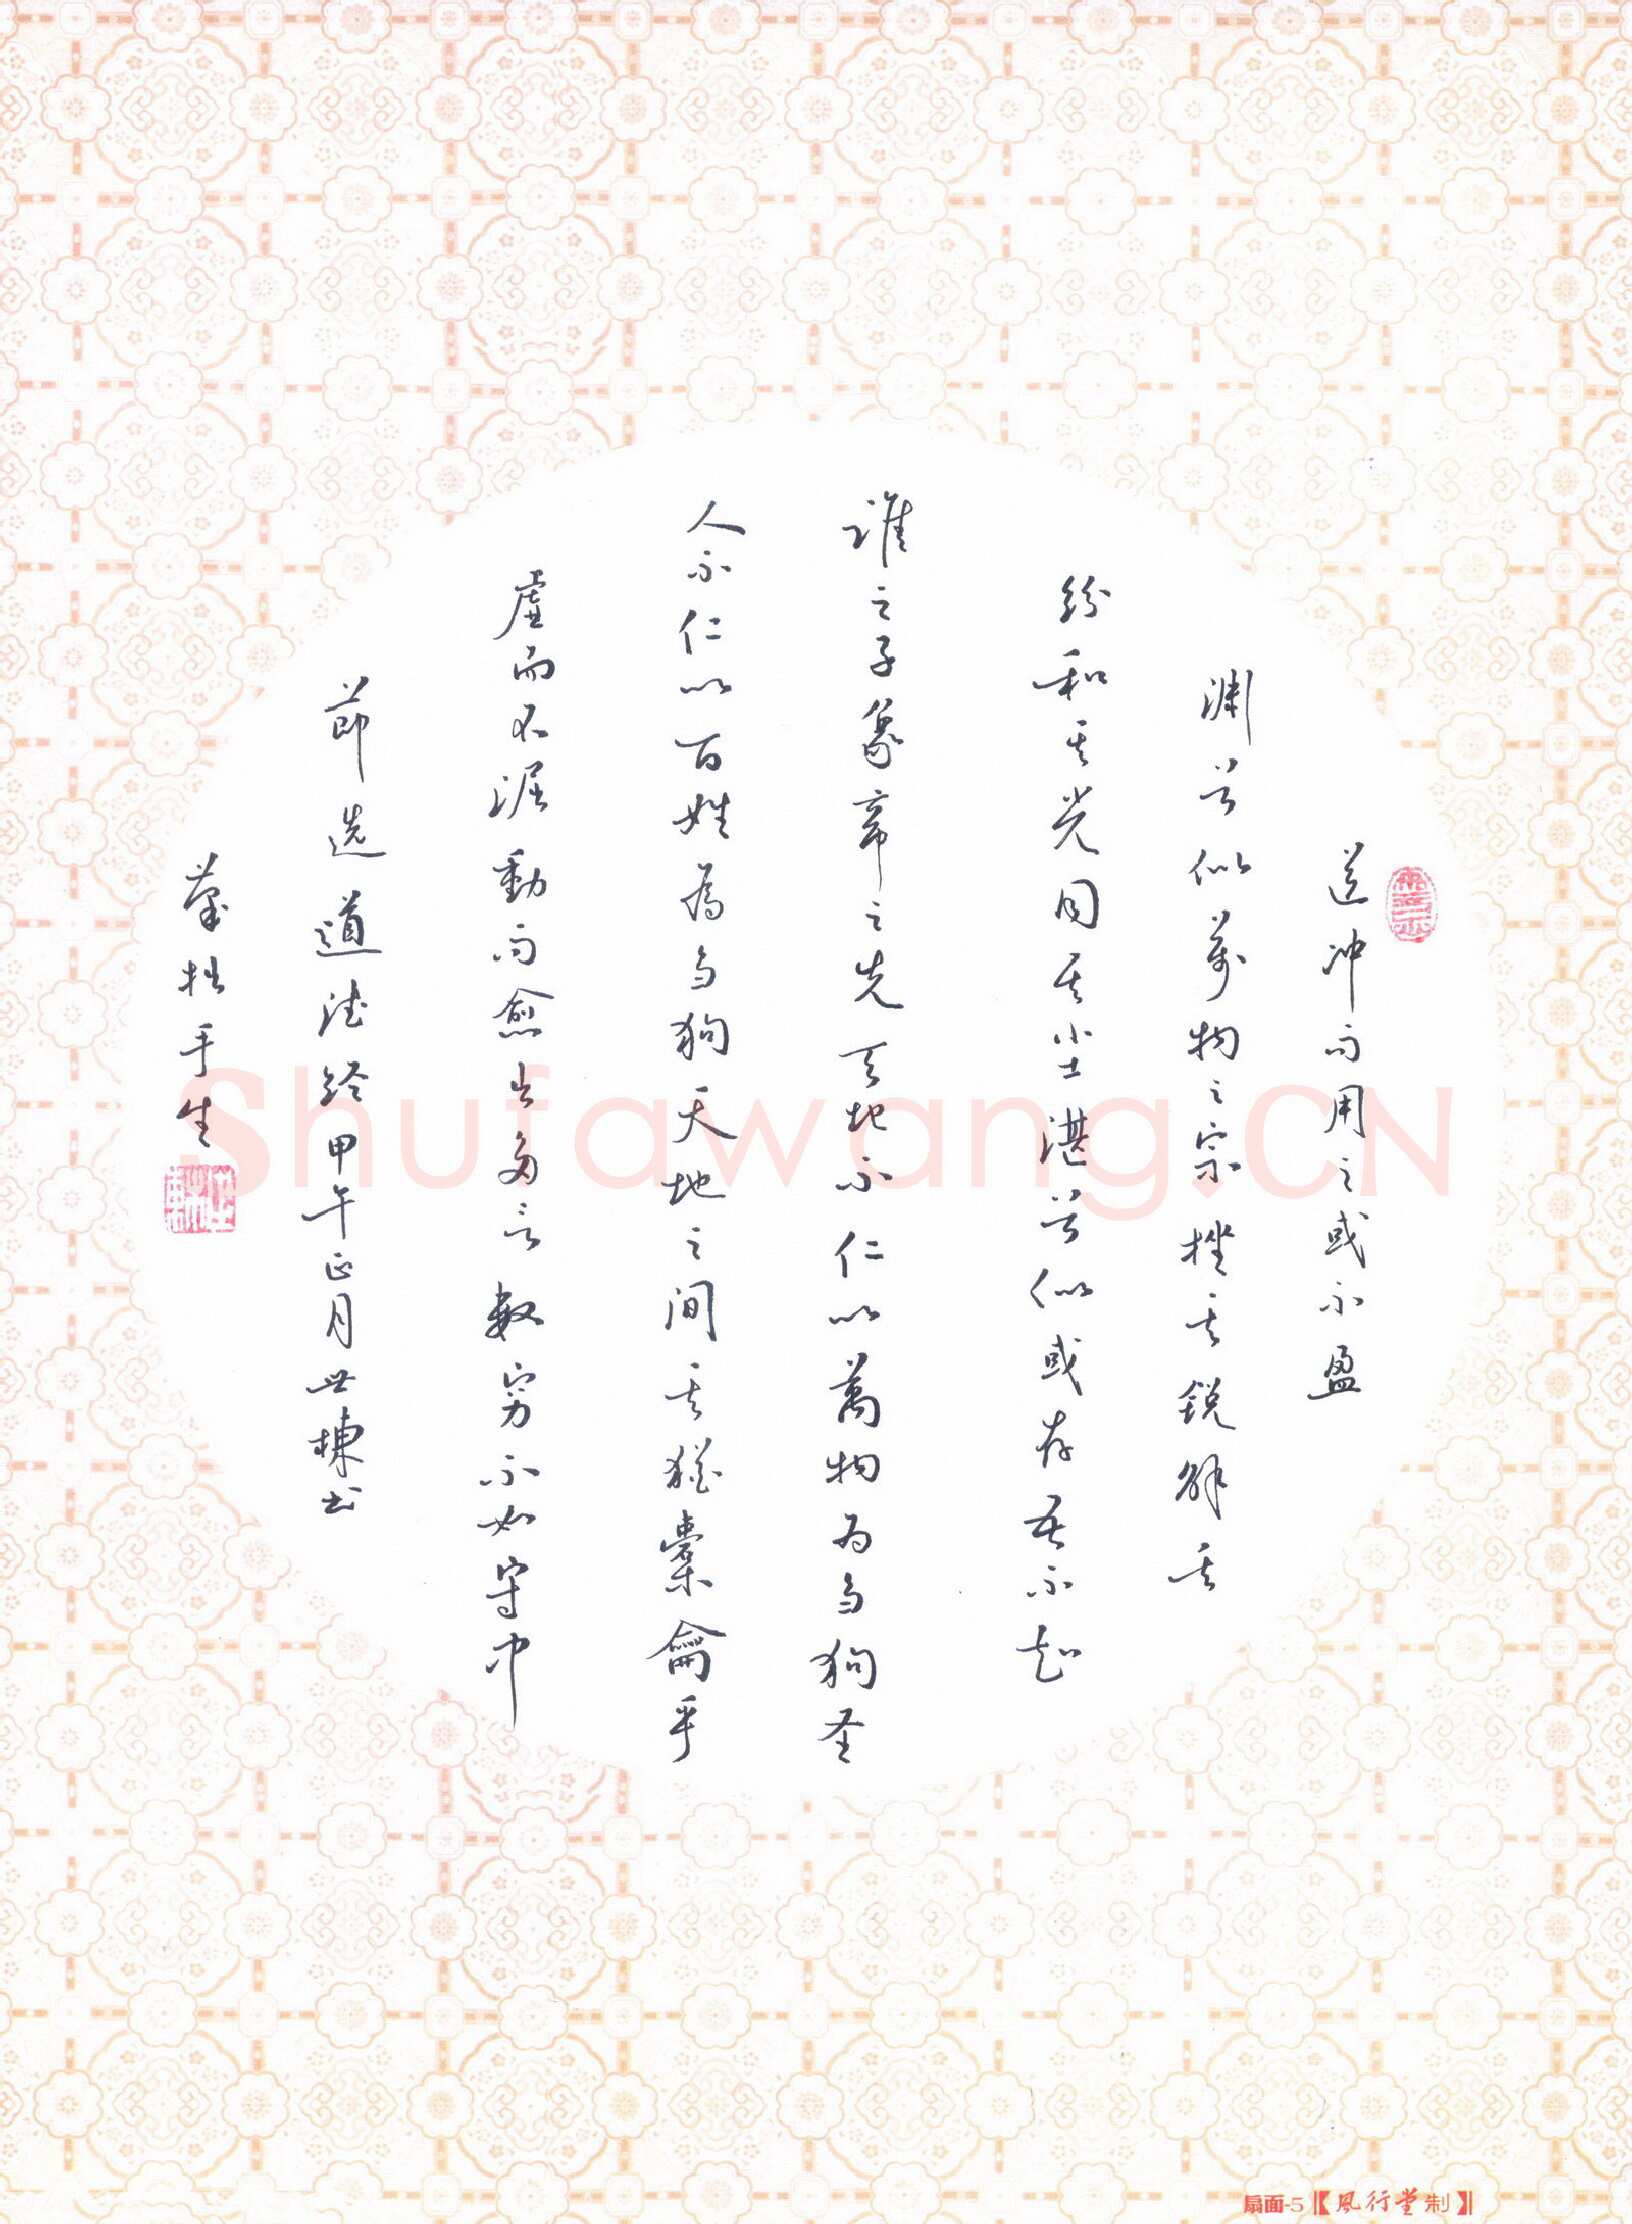 道冲而用之或不盈
渊兮似萬物之宗挫其锐解其
纷和其光同其尘湛兮似或存吾不知
谁之子象帝之先天地不仁以萬物为刍狗圣
人不仁以百姓為刍狗天地之间其猶橐龠乎
虚而不淈動而愈出多言數穷不如守中
节选道德经甲午正月世棟书
拙手生
Shufawang.CN
扇面-5【風行堂制】